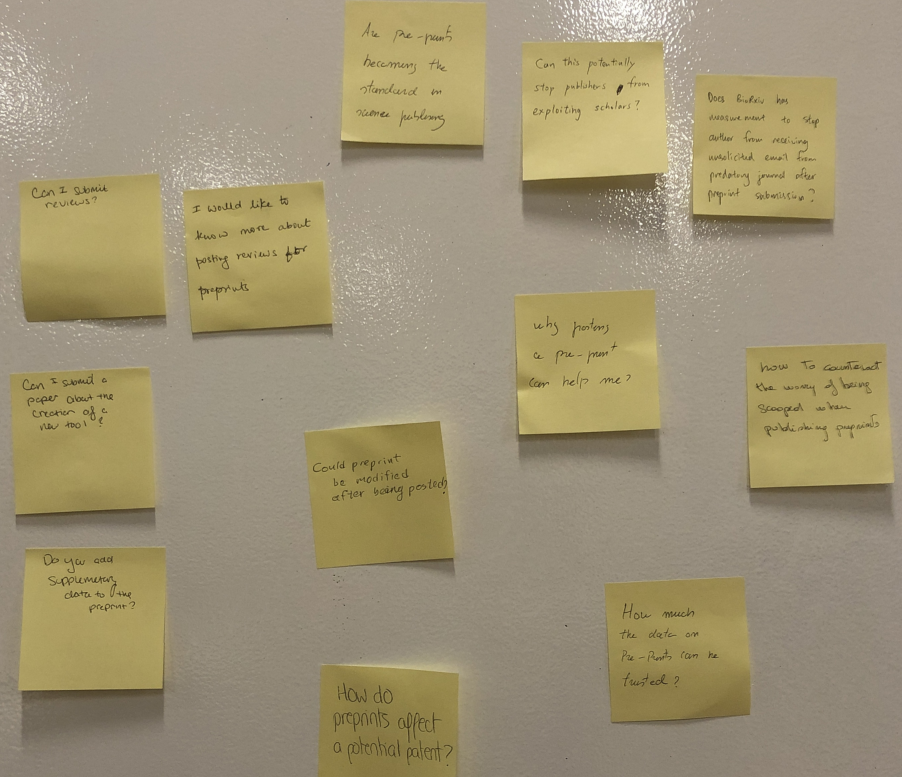 Are pre-prints
becoming the
standard in
science publishing
Can this potentially
stop publishers from
exploiting scholars?
Does BioRxiv has
measurement to stop
author from receiving
unsolicited email from
predatory journal after
preprint submission?
Can I submit
reviews?
I would like to
know more about
posting reviews for
preprints
why posting
a pre-print
can help me?
how to counteract
the worry of being
scooped when
publishing preprints
Can I submit a
paper about the
creation of a
new tool?
Could preprint
be modified
after being posted?
Do you add
supplementary
data to the
preprint?
How much
the data on
Pre-Prints can be
trusted?
How do
preprints affect
a potential patent?